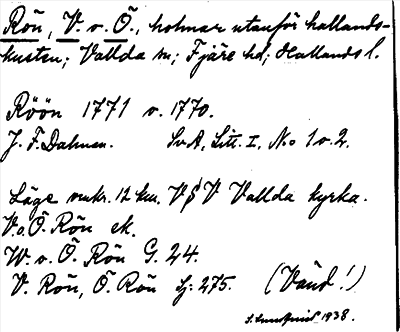 Rön, V. o. Ö., holmar utanför hallands-
kusten; Vallda sn; Fjäre hd; Hallands l.
Röön 1771 o. 1770.
J. F. Dalman. SvA, Litt. I, No 1 o. 2.
Läge omkr. 12 km. VSV Vallda kyrka.
V. o. Ö. Rön ek.
W. o. Ö. Rön G. 24.
V. Rön, Ö. Rön Sj: 275. (Vänd!)
1938.